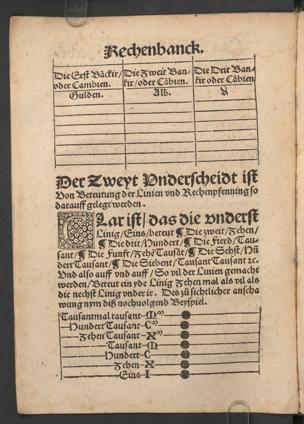 Rechenbanck.
Die Erst Bäckir/ oder Cambien.
Die Zweit Bankir/oder Cäbien.
Die Drit Bankir oder Cäbien
Gulden.
Der Zweyt Vnderscheidt ist
Von Beteutung der Linien vnd Rechenpfenning so
darauff gelegt werden.
CLar ist/ das die vnderst
Linig/Eins/beteut ¶ Die zweit/zehen/
¶ Die drit/Hundert/ ¶ Die Fierd/Tau-
sant/ ¶ Die Funft/zehē Tausāt/ ¶ Die Sehst/Hū
dert Tausant/ ¶ Die Siebent/Tausant Tausant ꝛc.
Vnd also auff vnd auff/ So vil der Linien gemacht
werden/Beteut ein yde Linig zehen mal als vil als
die nechst Linig vnder ir. Des zu sichtlicher anscha
wung nym diß nochuolgend Beyspiel.
Tausantmal tausant–M
Hundert Tausant–C
Zehen Tausant–X
Tausant–M
Hundert–C
Zehen–X
Eins–I